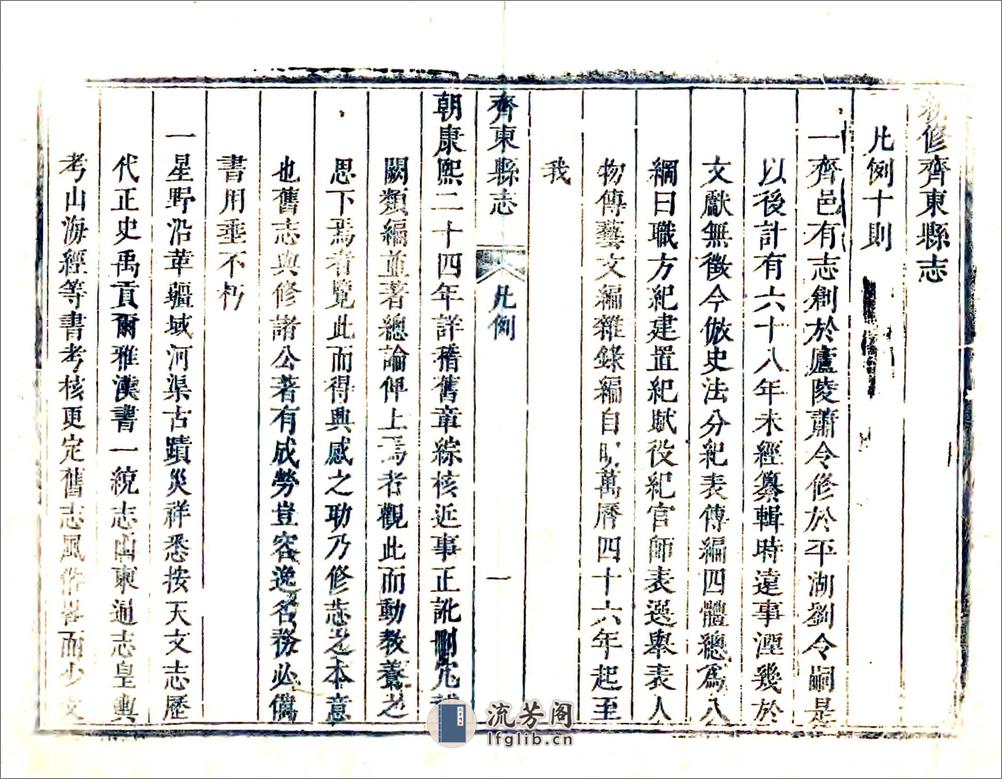 新修齊東縣志
凡例十則
一齊邑有志創於廬陵蕭令修於平湖劉令嗣是
以後計有六十八年未經纂輯時遠事湮幾於
文獻無徵今倣史法分紀表傳編四體總為八
綱曰職方紀建置紀賦役紀官師表選舉表人
物傳藝文編雜錄編自明萬曆四十六年起至
我
齊東縣志
凡例
一
朝康熙二十四年詳稽舊章綜核近事正訛刪冗補
闕類編並著總論俾上焉者觀此而動教養之
思下焉者覽此而得興感之功乃修志之本意
也舊志與修諸公著有成勞豈容逸名務必僃
書用垂不朽
一星野沿革疆域河渠古蹟災祥悉按天文志歷
代正史禹貢爾雅漢書一統志山東通志皇輿
考山海經等書考核更定舊志風俗畧而少文
流芳阁
lfglib.cn